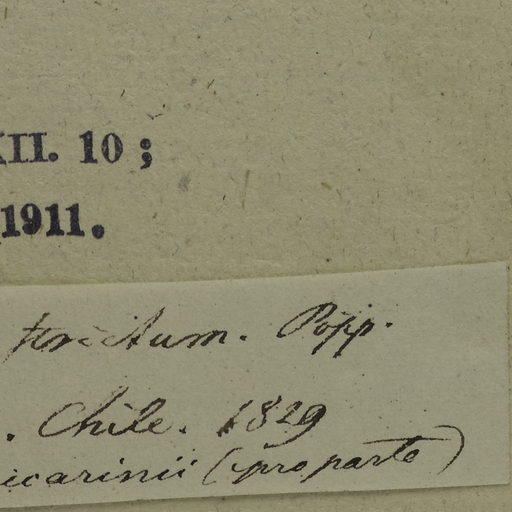 XII. 10 ;
1911.
strictum. Pöpp.
. Chile. 1829
icarinii (pro parte)